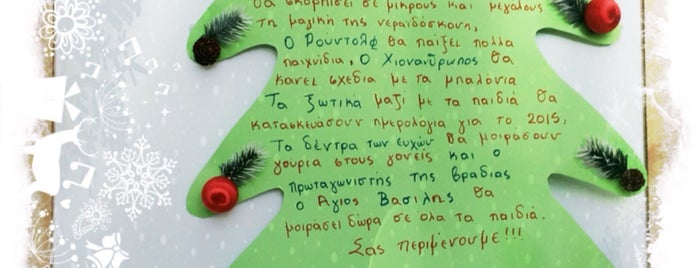 θα σκορπίσει σε μικρους και μεγάλους
τη μαγική της νεραϊδόσκονη,
Ο Ρούντολφ θα παίξει πολλα
παιχνίδια, ο Χιονανθρωπος θα
κανει σχεδια με τα μπαλόνια
Τα ξωτικά μαζί με τα παιδιά θα
κατασκευάσουν ημερολόγια για το 2015,
Τα δέντρα των ευχών θα μοιράσουν
γούρια στους γονείς και ο
πρωταγωνιστης της βραδιας
ο Άγιος Βασίλης θα
μοιράσει δώρα σε ολα τα παιδιά.
Σας περιμένουμε!!!